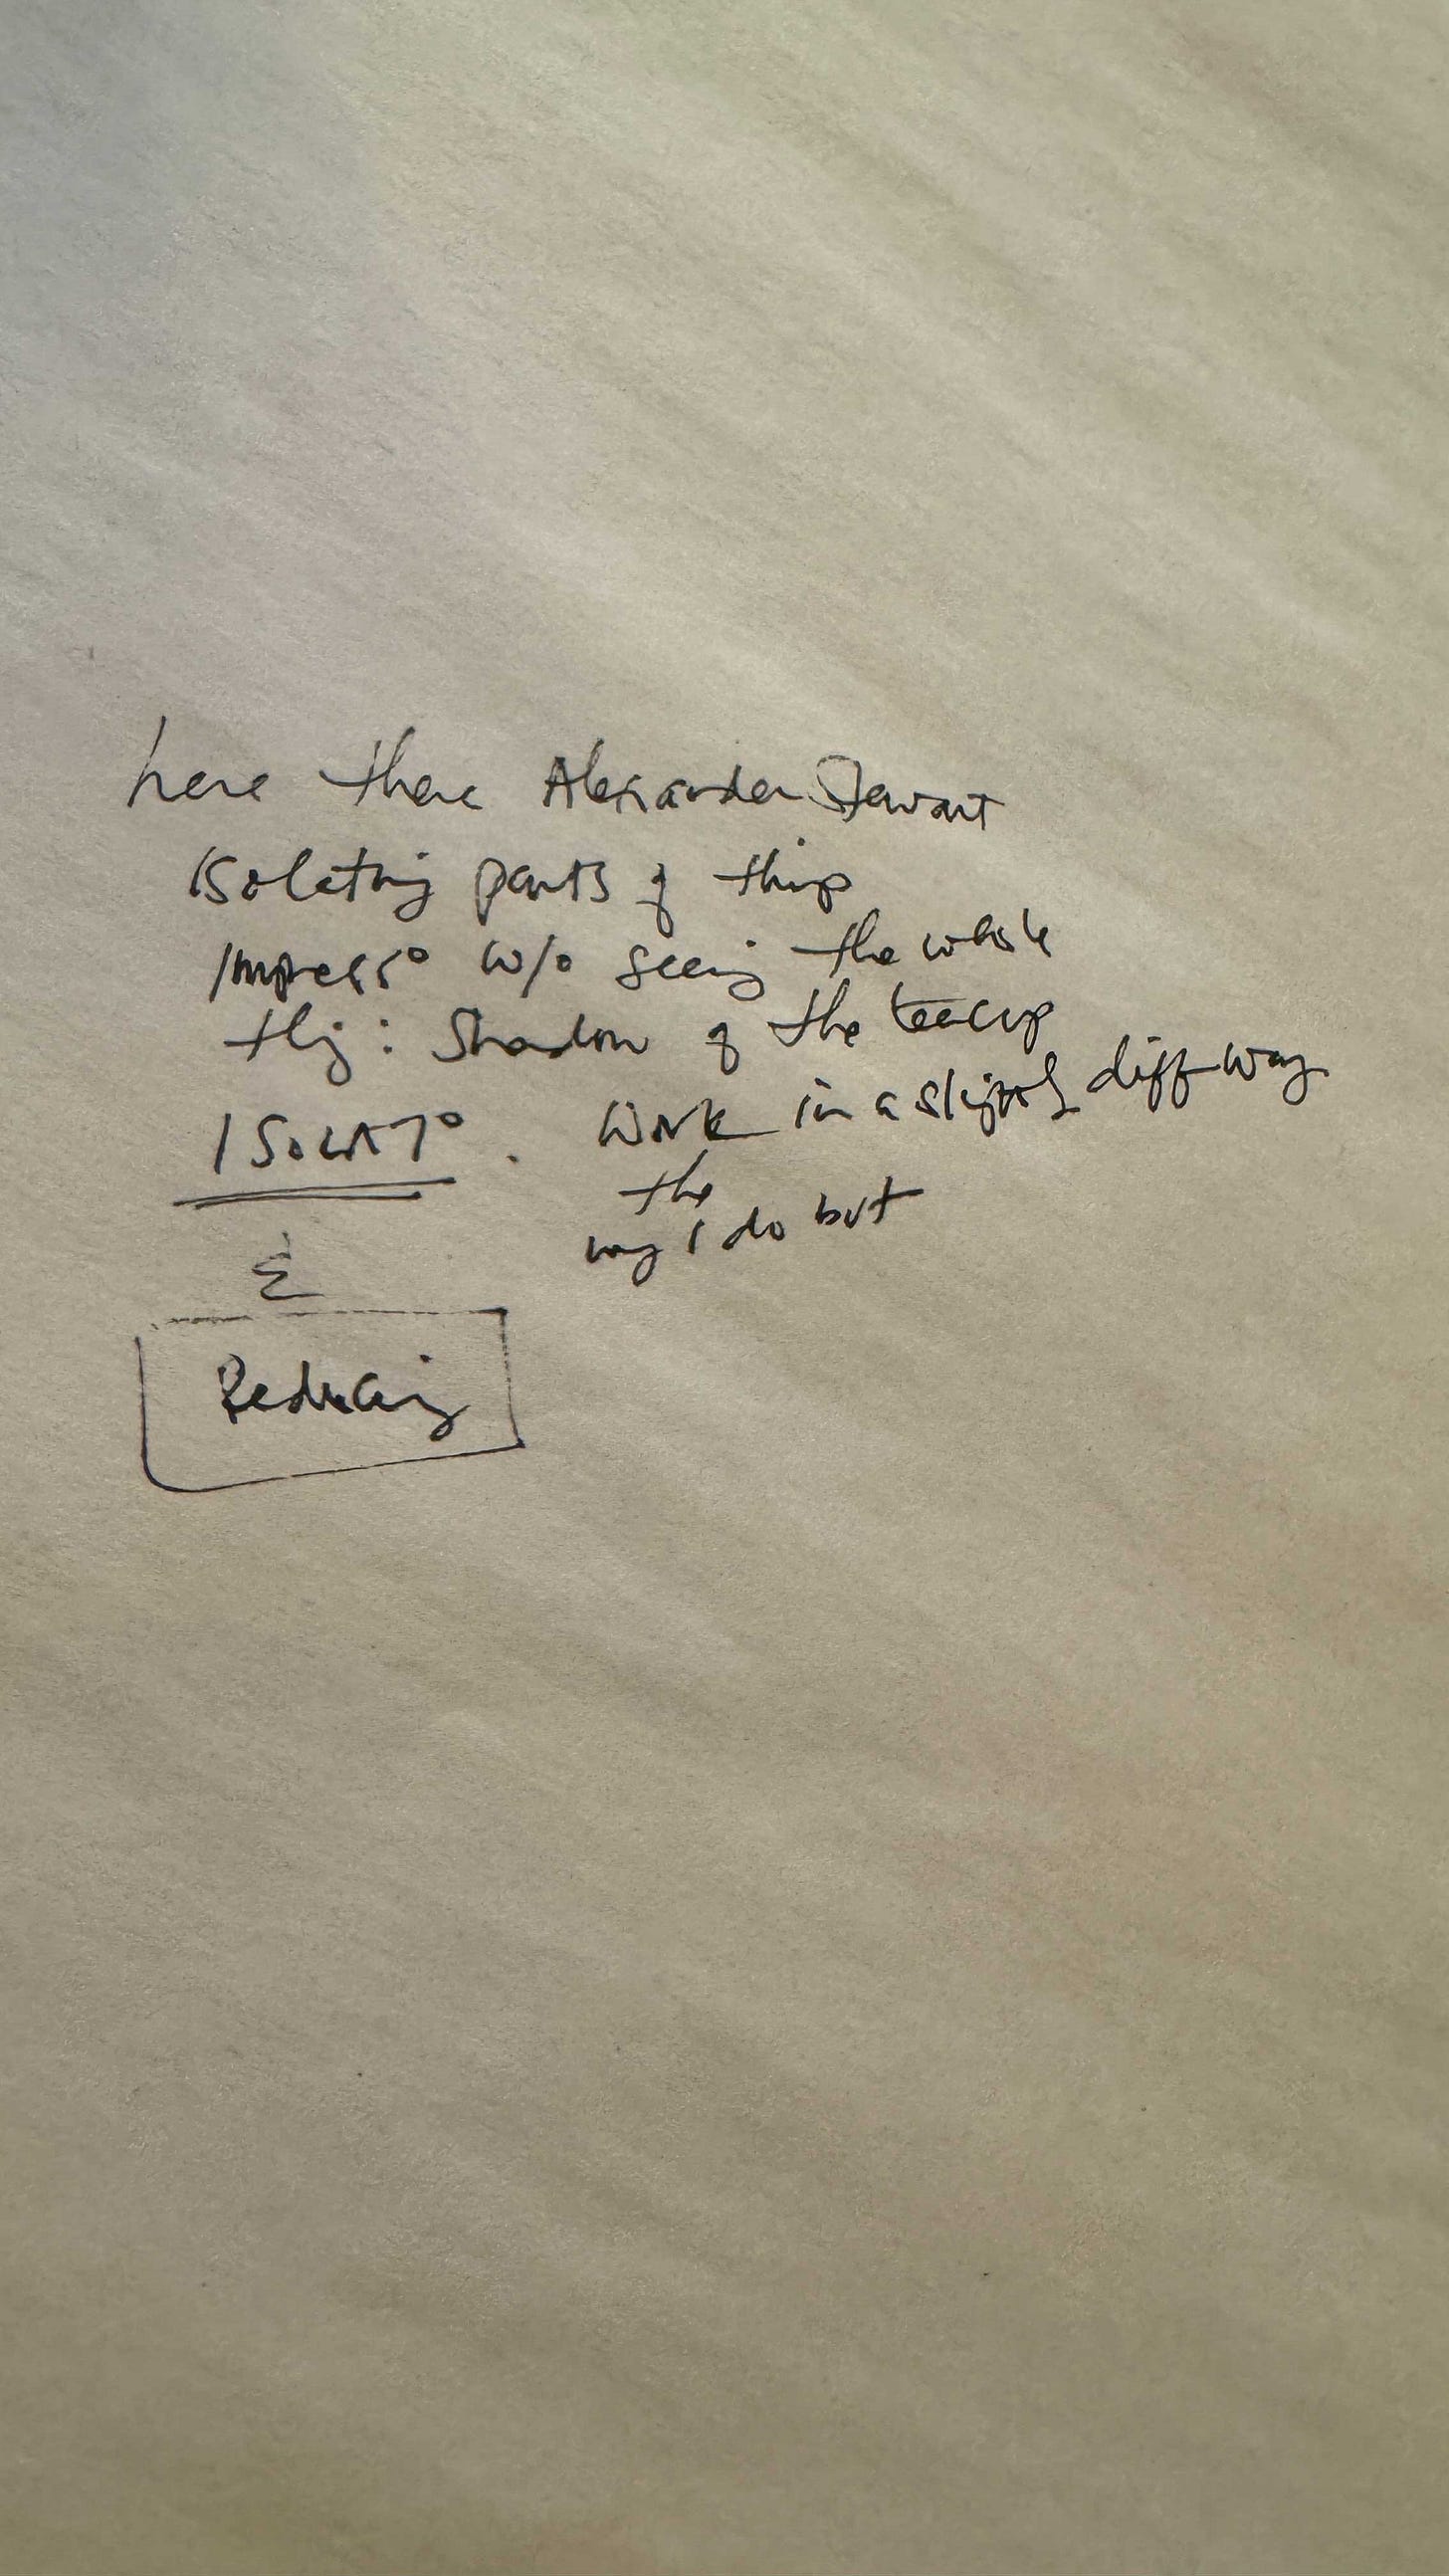 here there Alexander Stewart
isolating parts of things
impress° w/o seeing the whole
thing: Shadow of the teacup
ISOLAT°. Work in a slightly diff way
the
way I do but
&
Reducing